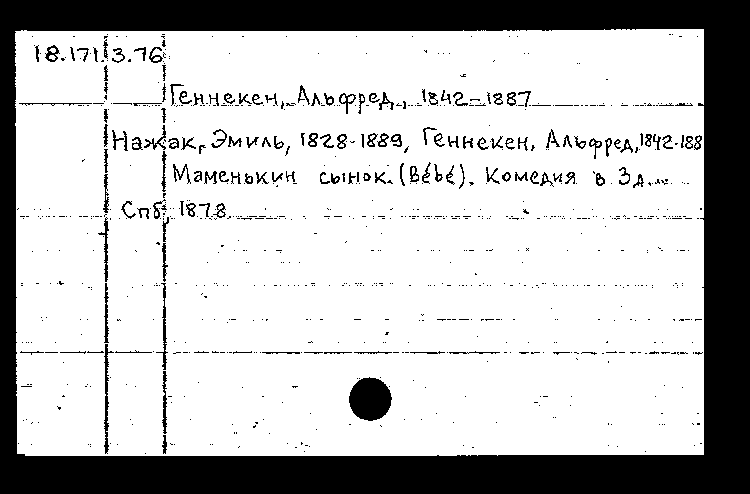 18.171.3.76
Геннекен, Альфред, 1842-1887
Нажак, Эмиль, 1828-1889, Геннекен, Альфред, 1842-188
Маменькин сынок. (Bébé). Комедия в 3 д...
Спб, 1878